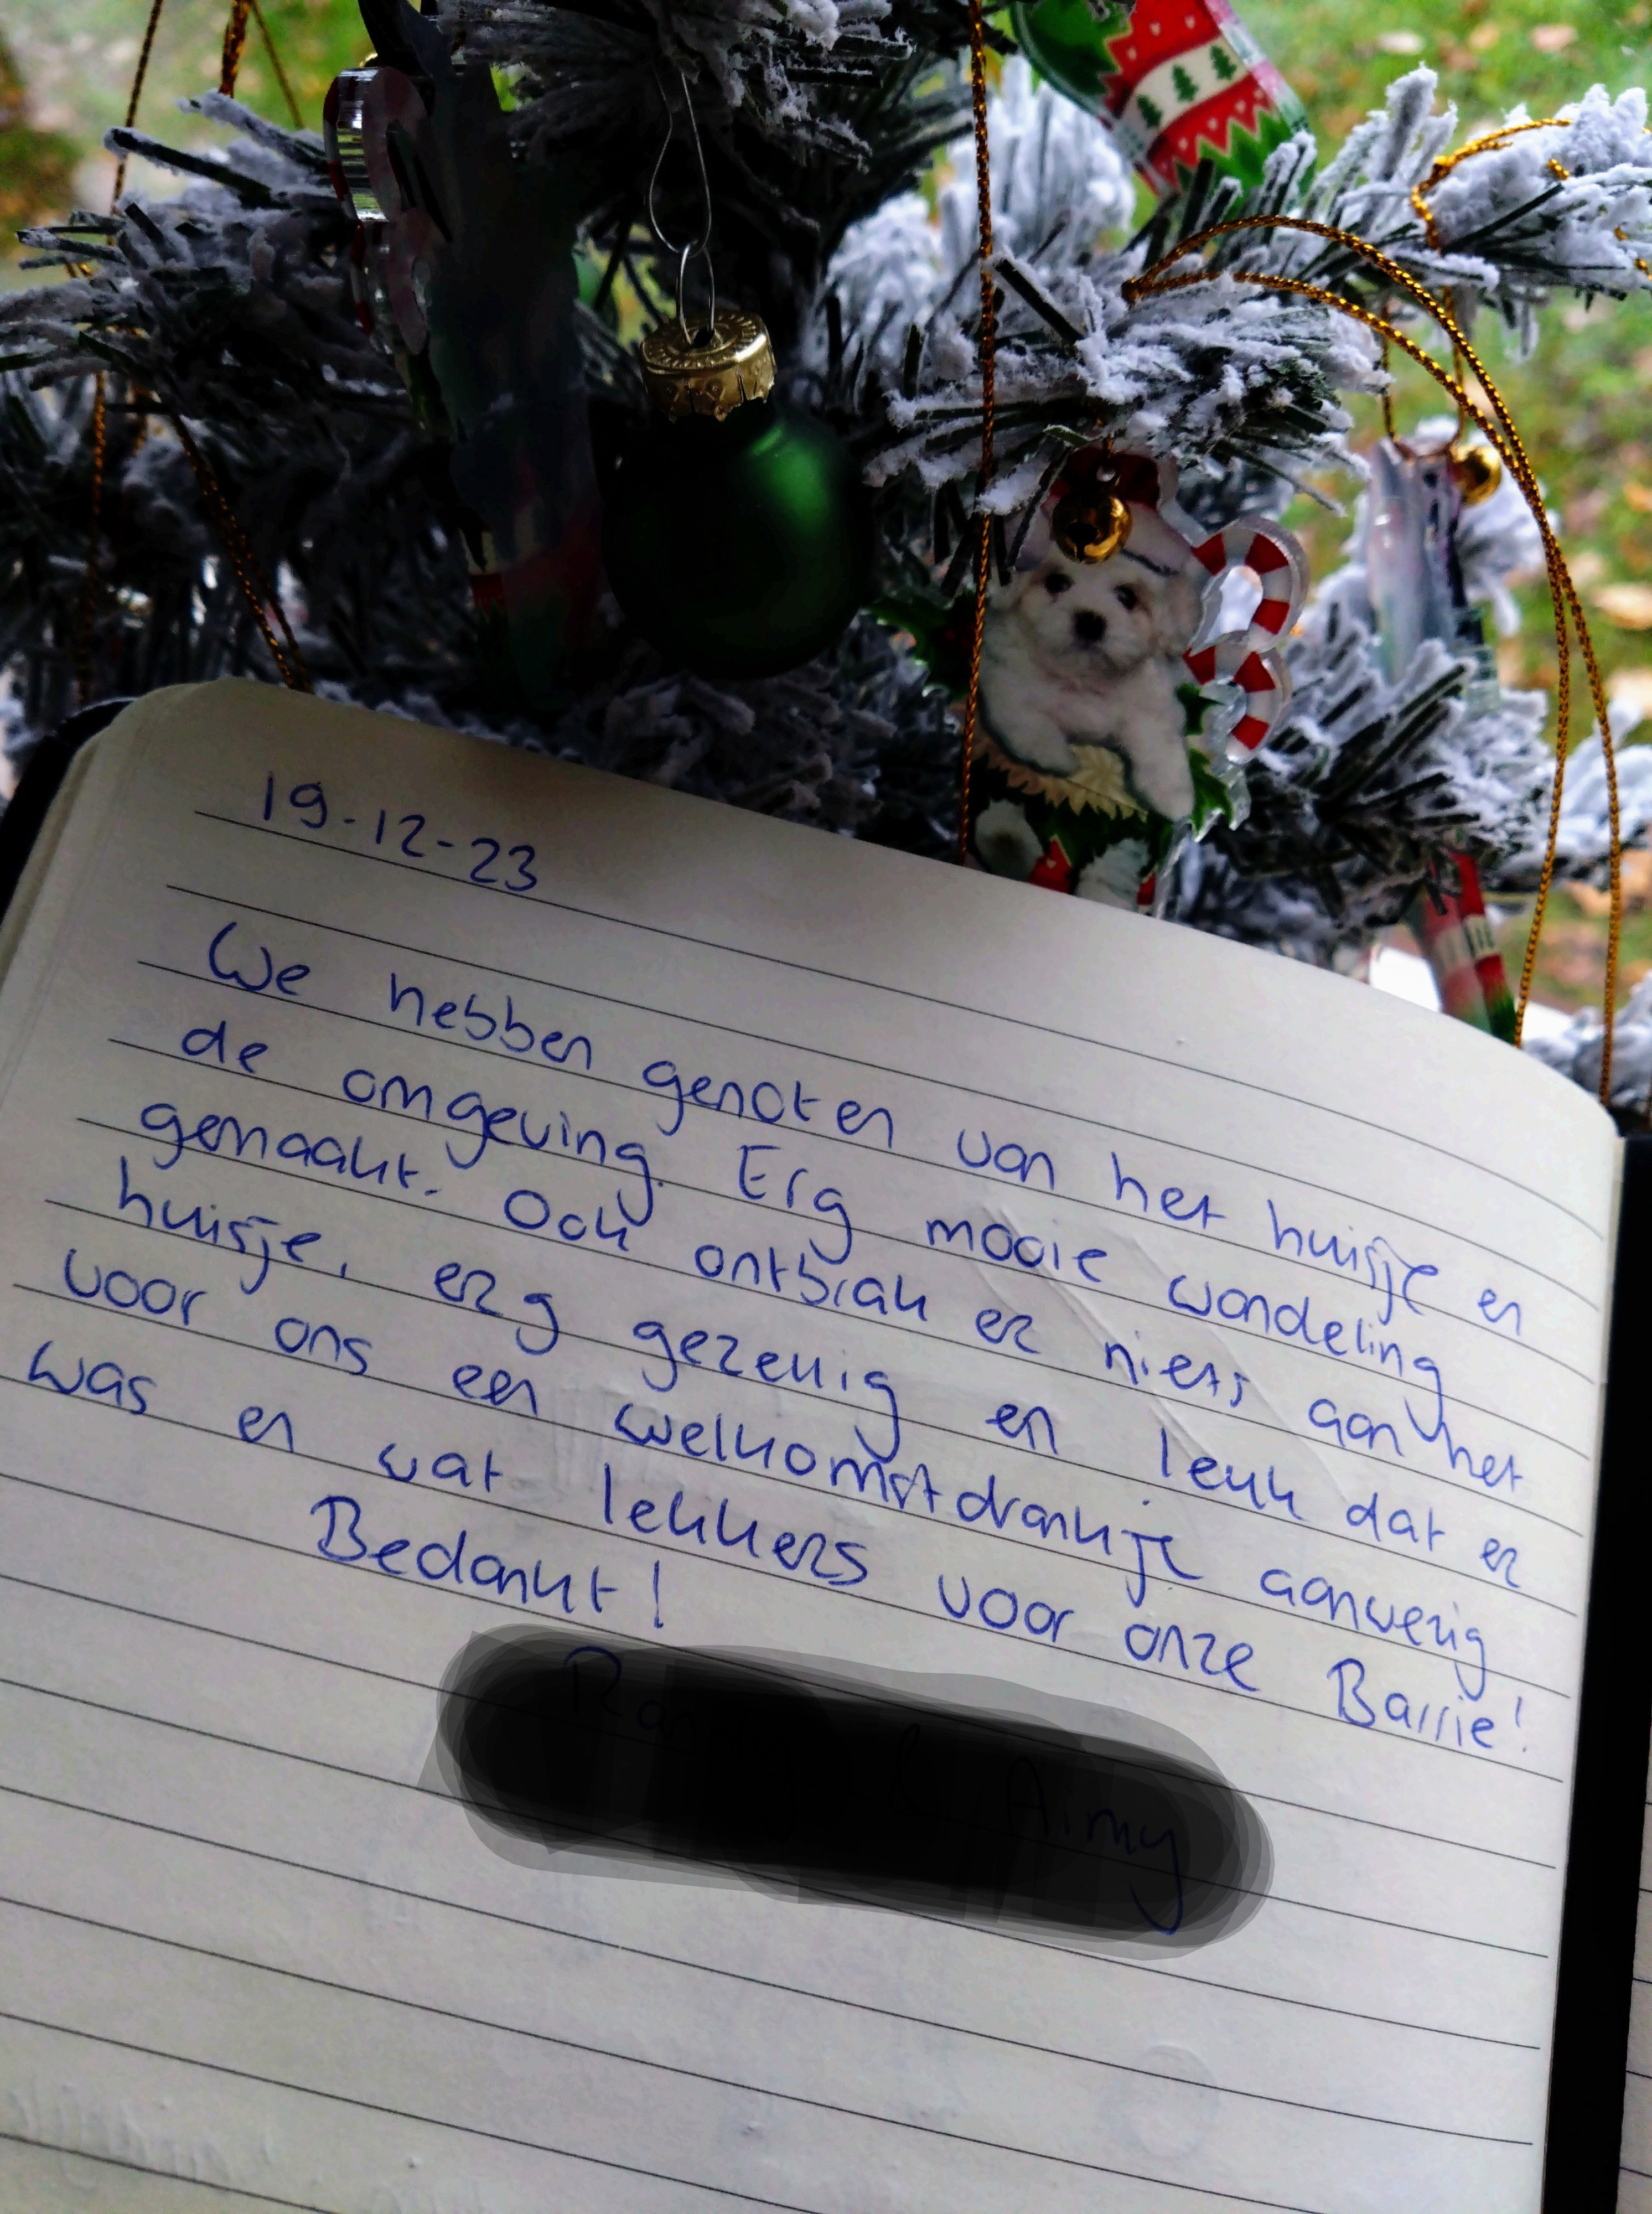 19-12-23
We hebben genoten van het huisje en
de omgeving. Erg mooie wandeling
gemaakt. Ook ontbrak er niets aan het
huisje, erg gezellig en leuk dat er
voor ons een welkomstdrankje aanwezig
was en wat lekkers voor onze Barrie!
Bedankt!